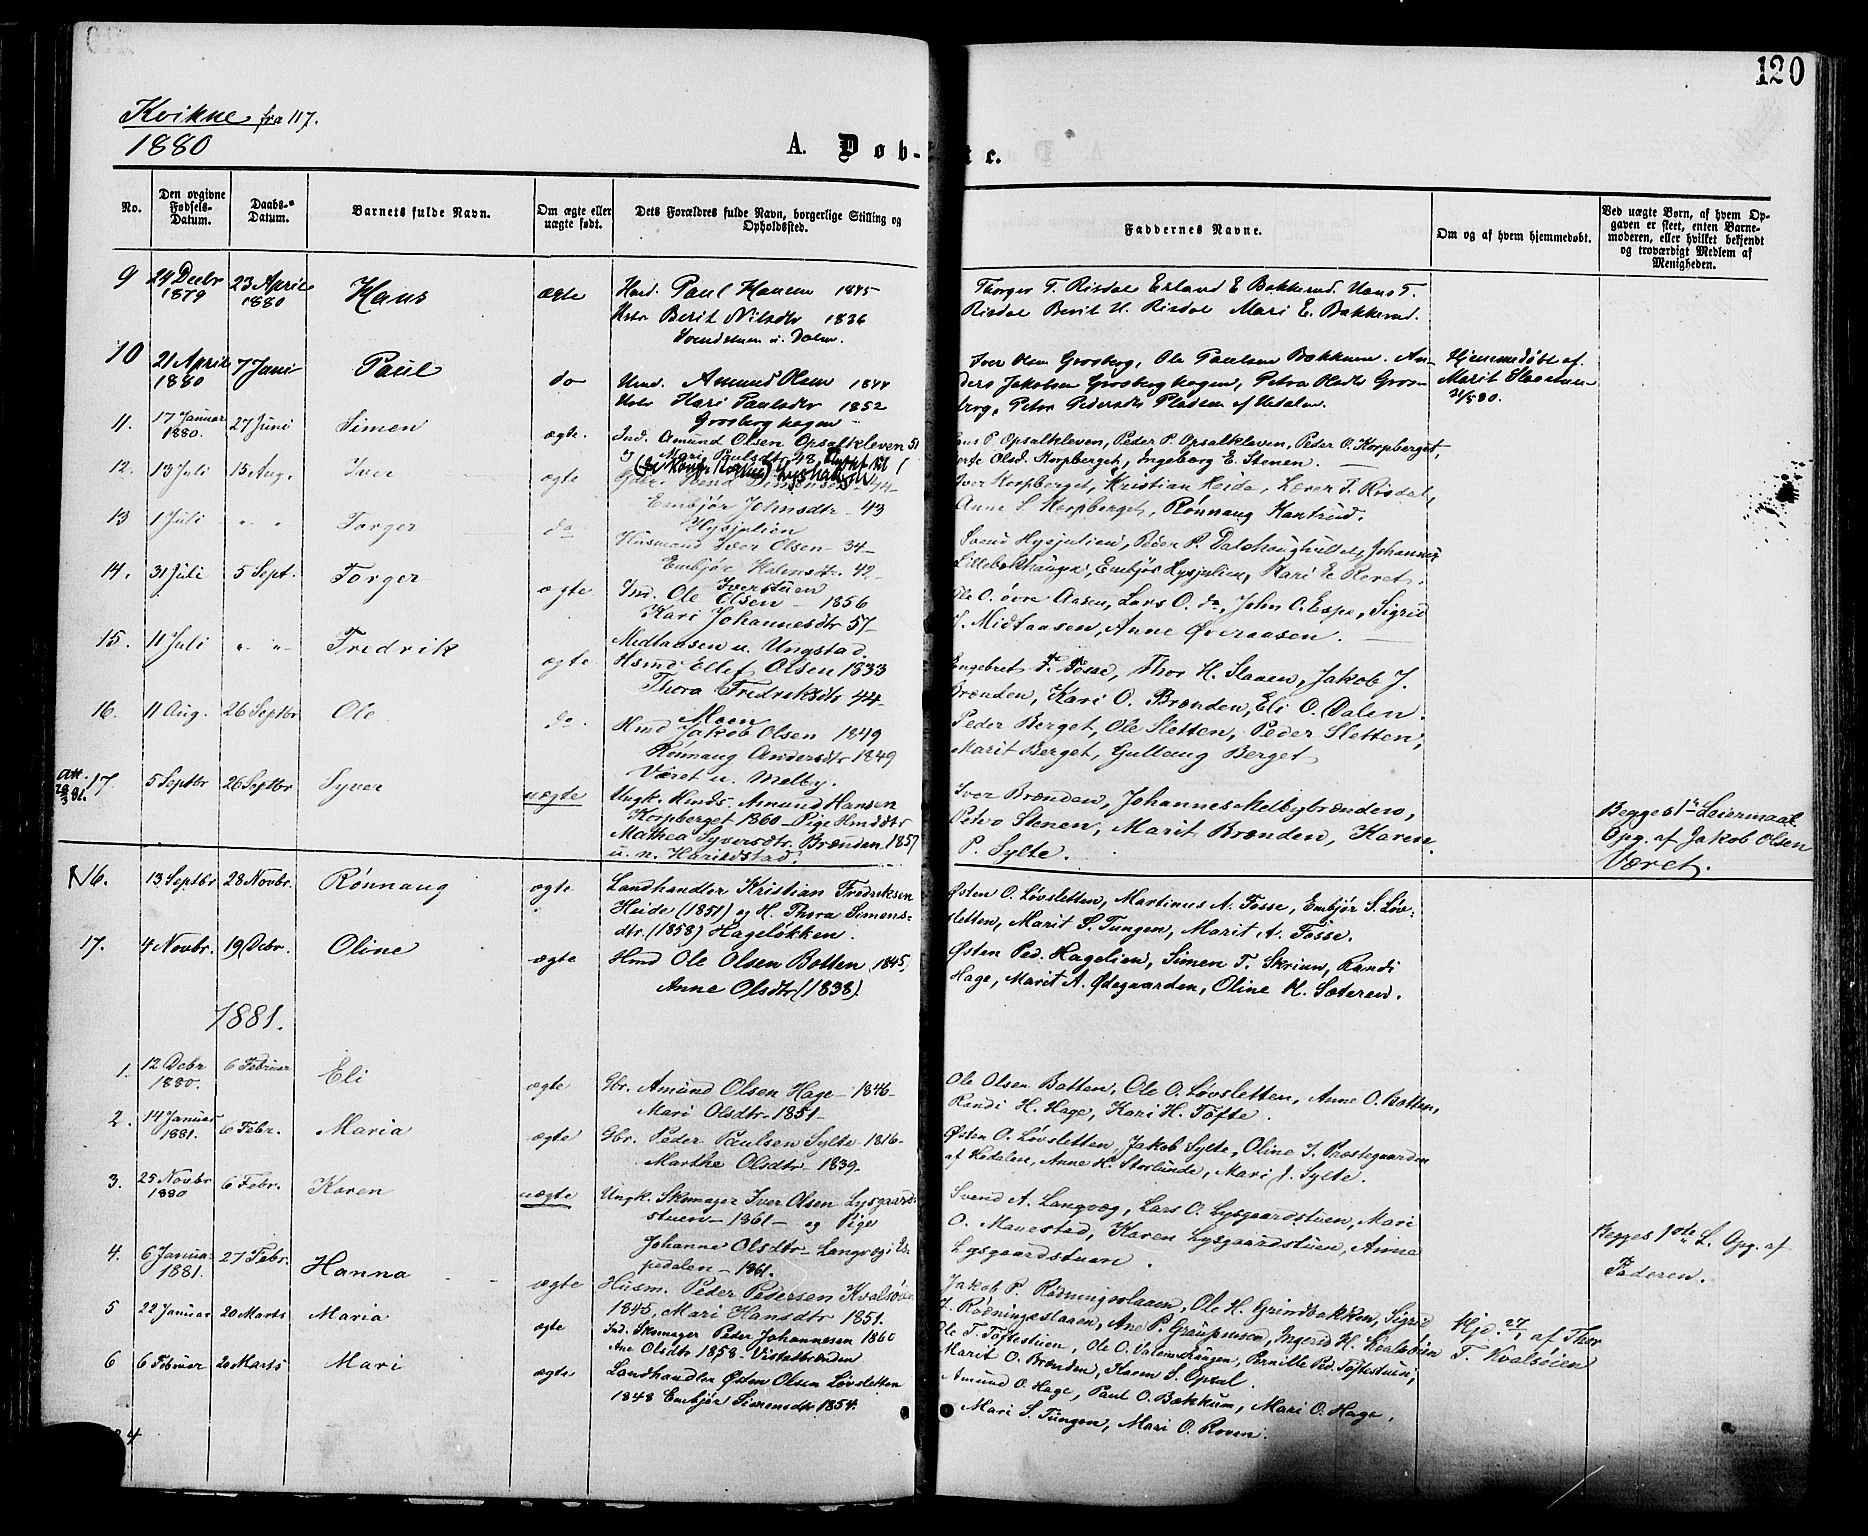 120
Kvikne fra 117.
1880
A. Døb-te.
No.
Den opgivne Fødsels-Datum.
Daabs-Datum.
Barnets fulde Navn.
Om ægte eller uægte født.
Dets Forældres fulde Navn, borgerlige Stilling og Opholdssted.
Faddernes Navne.
Om og af hvem hjemmedøbt.
Ved uægte Børn, af hvem Opgaven er skeet, enten Barnemoderen, eller hvilket bekjendt og troværdigt Medlem af Menigheden.
9 24 Decbr 1879 23 April 1880 Hans ægte
Paul Hansen 1845
Berit Nilsdtr 1836
Thorger T. Risdal Erland E Bakkerud. Hans T.
Risdal Berit H. Risdal Mari E. Bakkerud.
10 21 April 1880 7 Juni Paul do
Amund Olsen 1844
Kari Paulsdtr 1852
Grosberghagen
Iver Olsen Grosberg, Ole Paulsen Bakkum. An-
ders Jakobsen Grosberghagen, Petra Olsdtr Gros-
berg, Petra Pedersdtr Pladsen af Hedalen.
Hjemmedøbt af
Marit Slaaen
11. 17 Januar 1880. 27 Juni Simen ægte.
Ind. Amund Olsen Opsalkleven 51
Mari Paulsdtr 48
P Opsalkleven, Peder P. Opsalkleven, Peder O. Korpberget,
Olsd. Korpberget, Ingeborg E. Stenen.
12. 13 Juli 15 Aug. Iver ægte
Embjør Johnsdtr 43
Hysjulien
Iver Korpberget, Kristian Heide, Lærer T. Risdal,
Anne S Korpberget, Rønnaug Kantrud.
13 1 Juli " " Torger do
Husmand Iver Olsen 34
Embjør 42
Iverstuen
Svend Hysjulien, Peder P. Dalshaughultet, Johannes
Lillebakhaugen, Embjør Hysjulien, Kari E. Reret.
14. 31 Juli 5 Sept. Torger ægte
Ind. Ole Olsen 1856
Kari Johannesdtr 57
Midtaasen u. Ungstad.
Ole O. øvre Aasen, Lars O. do, John O. Espe, Sigrid
J. Midtaasen, Anne Øveraasen.
15. 11 Juli " " Fredrik ægte
Hsmd Ellef Olsen 1833
Thora Fredriksdtr 44
Moen
Engebret F. Fosse, Thor H. Slaaen, Jakob J.
Brænden, Kari O. Brænden, Eli O. Dalen.
16. 11 Aug. 26 Septbr Ole do.
Hmd Jakob Olsen 1849
Rønnaug Andersdtr 1849
Været u. Melby.
Peder Berget, Ole Sletten, Peder Sletten,
Marit Berget, Gullaug Berget
17. 5 Septbr 26 Septbr Syver uægte
Ungk. Hmds. Amund Hansen
Korpberget 1860 Pige Hmddtr
Mathea Syversdtr. Brænden 1857
u. n. Harildstad.
Iver Brænden, Johannes Melbybrænden,
Petra Stenen, Marit Brænden, Karen
P. Sylte.
Begges 1ste Leiermaal
Opg. af Jakob Olsen
Været.
N6. 13 Septbr 28 Novbr. Rønnaug ægte
Landhandler Kristian Fredriksen
Heide (1851) og H. Thora Simens-
dtr. (1858) Hageløkken.
Østen O. Løvsletten, Martinus A. Fosse, Embjør S. Løv-
sletten, Marit S. Tungen, Marit A. Fosse.
17. 4 Novbr. 19 Decbr. Oline ægte
Hmd Ole Olsen Botten 1845,
Anne Olsdtr (1838).
Østen Ped. Hagelien, Simen T. Skriun, Randi
Hage, Marit A. Ødegaarden, Oline H. Sæteren.
1881.
1. 12 Decbr 1880. 6 Februar Eli ægte
Gbr. Amund Olsen Hage 1846
Mari Olsdtr 1851
Ole Olsen Botten, Ole O. Løvsletten, Anne O. Botten,
Randi H. Hage, Kari H. Tofte.
2. 14 Januar 1881. 6 Febr. Maria ægte
Gbr. Peder Paulsen Sylte 1816
Marthe Olsdtr 1839.
Østen O. Løvsletten, Jakob Sylte, Oline I. Præstegaarden
af Hedalen, Anne H. Storlunde, Mari J. Sylte.
3. 25 Novbr 1880 6 Febr. Karen uægte
Ungk. Skomager Iver Olsen Lysgaard-
stuen 1861 og Pige
Johanne Olsdtr Langvæg i Es-
pedalen 1861.
Svend A. Langvæg, Lars O. Lysgaardstuen, Mari
O. Maurstad, Karen Lysgaardstuen, Anne
Lysgaardstuen.
Begges 1ste L. Opg. af
Faderen.
4. 6 Januar 1881. 27 Febr. Hanna ægte
Husm. Peder Pedersen Kvalsøien
1845, Mari Hansdtr 1851.
Jakob P. Rødningsslaaen, Ole H. Grindbakken, Sigrid
J. Rødningsslaaen, Ane P. Graupuren, Ingerid H. Kvalsøien
Hjd. 27/1 af Thor
T. Kvalsøien
5 22 Januar 20 Marts Maria ægte
Ind. Skomager Peder Johannesen 1860
Ane Olsdtr 1858 Vistadbrænden
Ole T. Toftestuen, Ole O. Haugen, Pernille Ped. Toftestuen,
Marit O. Brænden, Karen S. Opsal.
6 6 Februar 20 Marts Mari ægte
Landhandler Østen Olsen Løvsletten
1848 Embjør Simensdtr 1854.
Amund O. Hage, Paul O. Bækkum, Mari O. Hage,
Mari S. Tungen, Mari O. Roven.